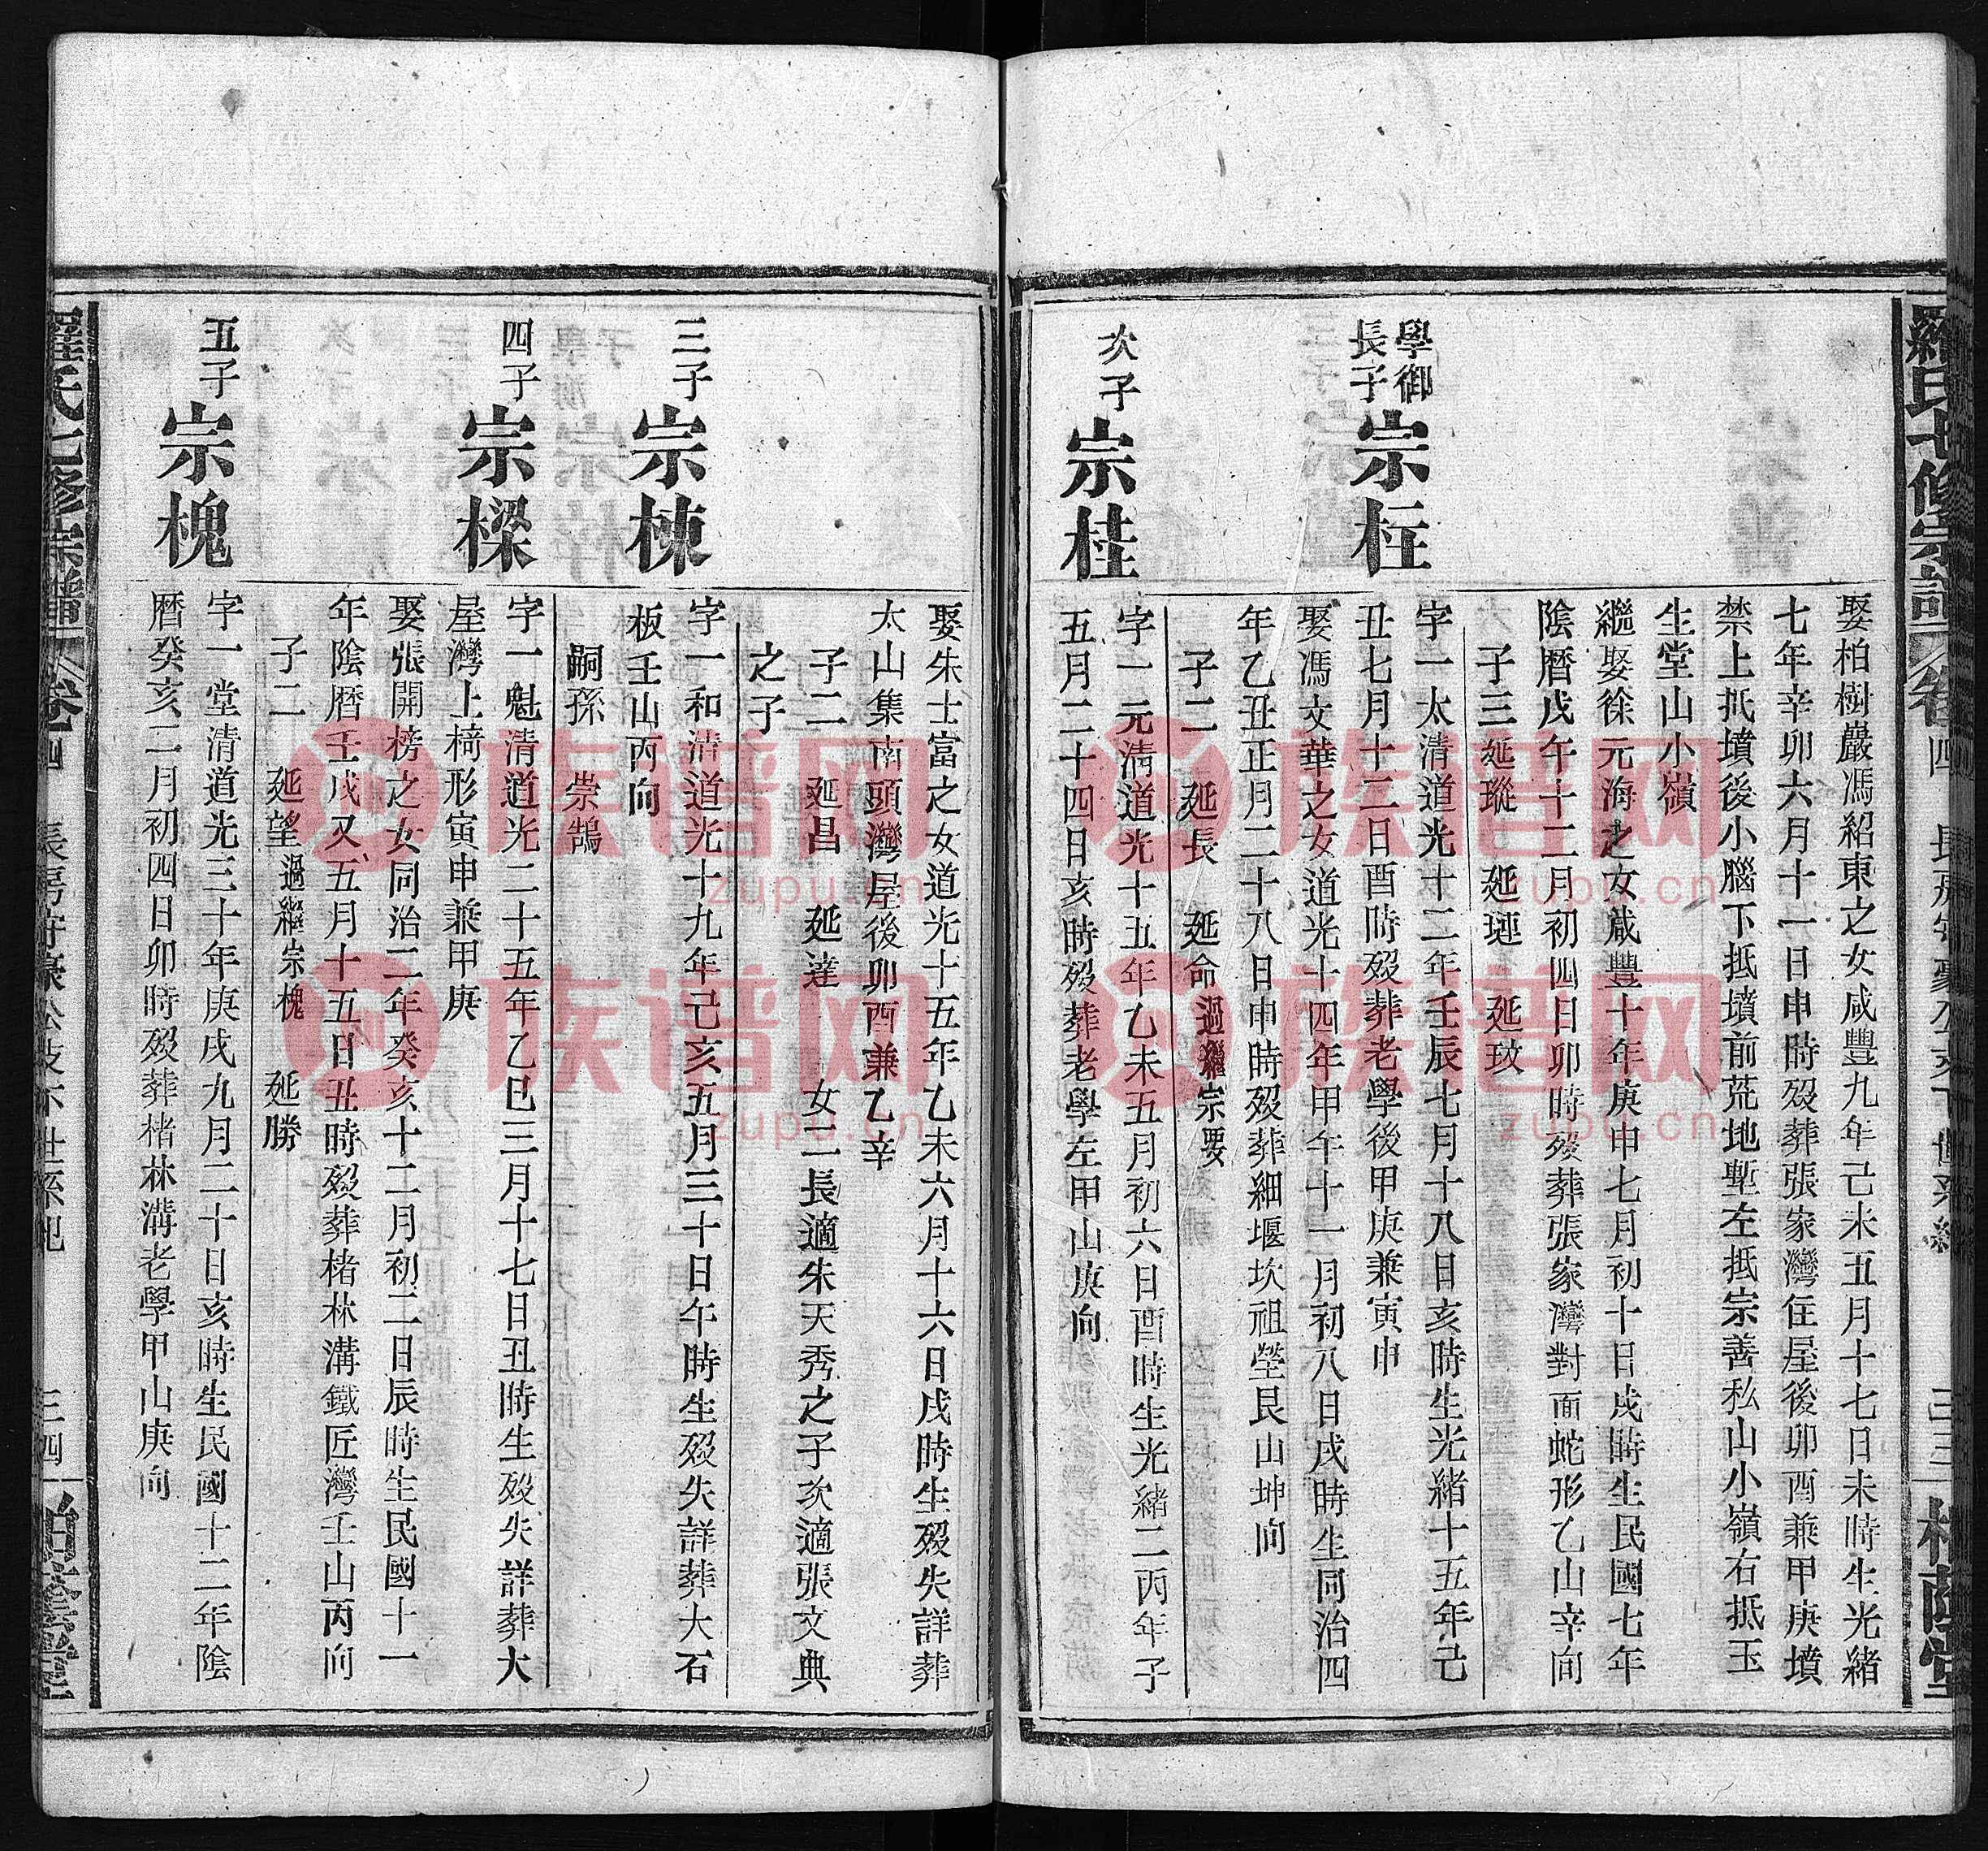 羅氏七修宗譜 卷四 長房守豪公支下世系紀 三三 柏蔭堂
娶柏樹嚴馮紹東之女咸豐九年己未五月十七日未時生光緒
七年辛卯六月十一日申時歿葬張家灣住屋後卯酉兼甲庚墳
禁上抵墳後小腦下抵墳前荒地塹左抵宗善私山小嶺右抵玉
生堂山小嶺
繼娶徐元海之女咸豐十年庚申七月初十日戌時生民國七年
陰曆戊午十二月初四日卯時歿葬張家灣對面蛇形乙山辛向
子三 延瑽 延璉 延玟
學御
長子
宗枉
字一太清道光十二年壬辰七月十八日亥時生光緒十五年己
丑七月十二日酉時歿葬老學後甲庚兼寅申
娶馮文華之女道光十四年甲午十一月初八日戌時生同治四
年乙丑正月二十八日申時歿葬細堰坎祖塋艮山坤向
子二 延長 延命過繼宗要
次子
宗桂
字一元清道光十五年乙未五月初六日酉時生光緒二丙年子
五月二十四日亥時歿葬老學左甲山庚向
娶朱士富之女道光十五年乙未六月十六日戌時生歿失詳葬
太山集南頭灣屋後卯酉兼乙辛
子二 延昌 延達 女二長適朱天秀之子次適張文典
之子
三子
宗棟
字一和清道光十九年己亥五月三十日午時生歿失詳葬大石
板壬山丙向
嗣孫 崇鵠
四子
宗樑
字一魁清道光二十五年乙巳三月十七日丑時生歿失詳葬大
屋灣上椅形寅申兼甲庚
娶張開榜之女同治二年癸亥十二月初二日辰時生民國十一
年陰曆壬戌又五月十五日丑時歿葬楮林溝鐵匠灣壬山丙向
子二 延望過繼宗槐 延勝
五子
宗槐
字一堂清道光三十年庚戌九月二十日亥時生民國十二年陰
曆癸亥二月初四日卯時歿葬楮林溝老學甲山庚向
羅氏七修宗譜 卷四 長房守豪公支下世系紀 三四 柏蔭堂
族谱网
zupu.cn
族谱网
zupu.cn
族谱网
zupu.cn
族谱网
zupu.cn